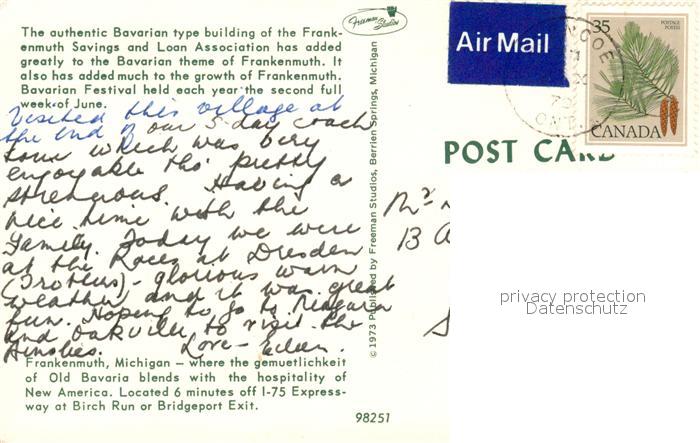 The authentic Bavarian type building of the Frank-
enmuth Savings and Loan Association has added
greatly to the Bavarian theme of Frankenmuth. It
also has added much to the growth of Frankenmuth.
Bavarian Festival held each year the second full
week of June.
Visited this village at
the end of our 5 day coach
tour which was very
enjoyable tho' pretty
strenuous. Having a
nice time with the
family. Today we were
at the Races at Dresden
(Trotters) - glorious warm
weather and it was great
fun. Hoping to go to Niagara
and Oakville to visit the
Ainslies. Love - Eileen.
Frankenmuth, Michigan — where the gemuetlichkeit
of Old Bavaria blends with the hospitality of
New America. Located 6 minutes off I-75 Express-
way at Birch Run or Bridgeport Exit.
98251
Freeman Studios
© 1973 Published by Freeman Studios, Berrien Springs, Michigan
Air Mail
35
POSTAGE
POSTES
CANADA
ONT.
POST CARD
privacy protection
Datenschutz